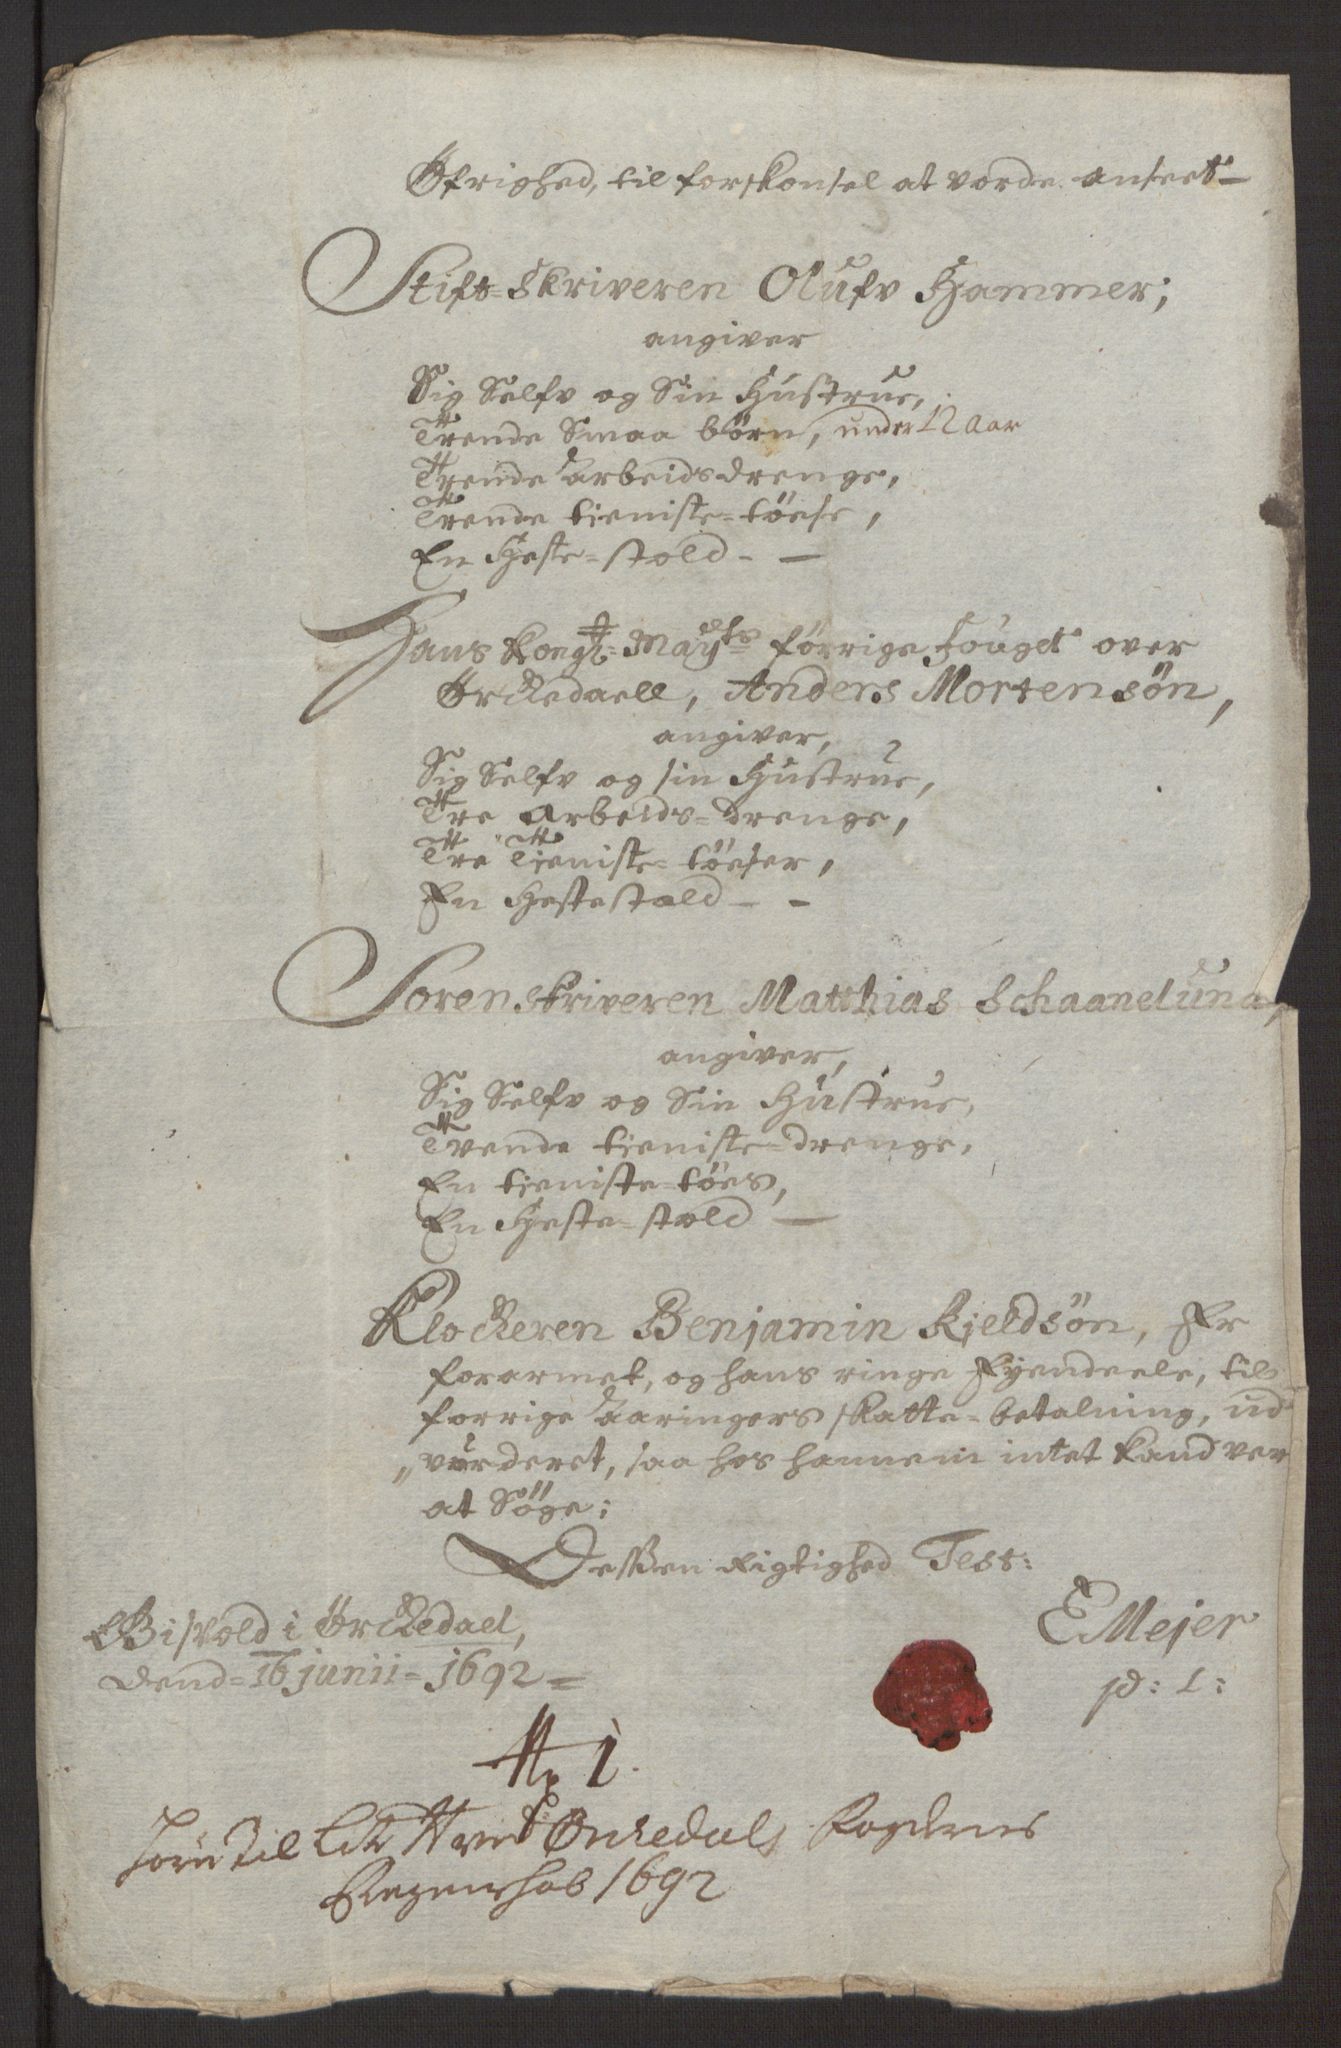 Øfrighed, til forskonsel at vorde anseet-
Stift-Skriveren Olufv Hammer;
angiver
Sig Selfv og Sin Hustrue,
Trende Smaa børn, under 12 Aar
Trende Arbeids drenge,
Trende tieniste-tøese,
En Heste-stald - -
Hans Kongl: Mayts forrige fouget over
Ørckedaell, Anders Mortensøn,
angiver,
Sig Selfv og sin Hustrue,
Tre Arbeids-drenge,
Tre Tieniste-tøeser,
En Hestestald - -
Sorenskriveren Matthias Schaanelund,
angiver,
Sig Selfv og Sin Hustrue,
Tvende tieniste-drenge,
En tieniste-tøes,
En Heste-stald -
Klockeren Benjamin Kjeldsøn, Er
forarmet, og hans ringe Eyendeele, til
forrige Aaringers skatte-betalning, ud
„vurderet, saa hos hannem intet kand ver
at Søge:
Dessen Rigtighed Test:
EMejer
p: L:
Bisvold i Ørckedael,
dend=16 junii=1692=
No 1.
til Ørckedals Fogderies
Regenshab 1692